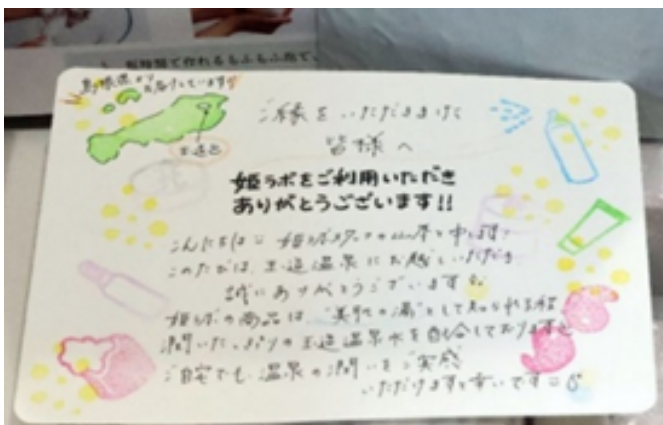 島根県より
お届けしています!!
玉造
ご縁をいただきました
皆様へ
姫ラボをご利用いただき
ありがとうございます!!
こんにちは 姫ラボスタッフの山本と申します
このたびは、玉造温泉にお越しいただき
誠にありがとうございます
姫ラボの商品は、"美肌の湯"として知られる
潤いたっぷりの玉造温泉水を配合しております
ご自宅でも温泉の潤いをご実感
いただけますと幸いです